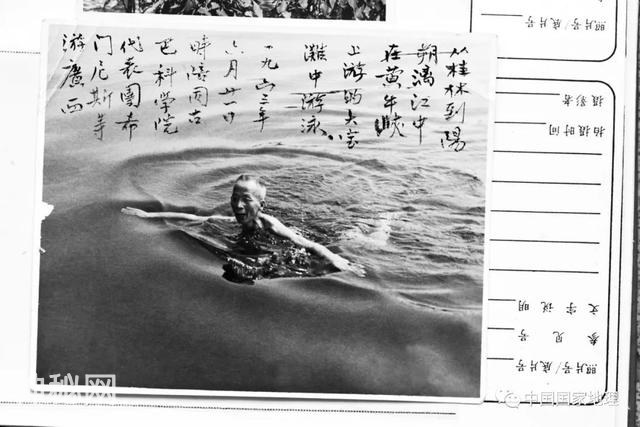 从桂林到陽
朔漓江中
在黄牛峡
上游的大宝
灘中游泳。
一九六三年
六月廿一日
時陪同古
巴科学院
代表團希
门尼斯等
游廣西
照片号/底片号
参见号
文字说明
拍摄时间
摄影者
照片号/底片号
秘网
中国国家地理